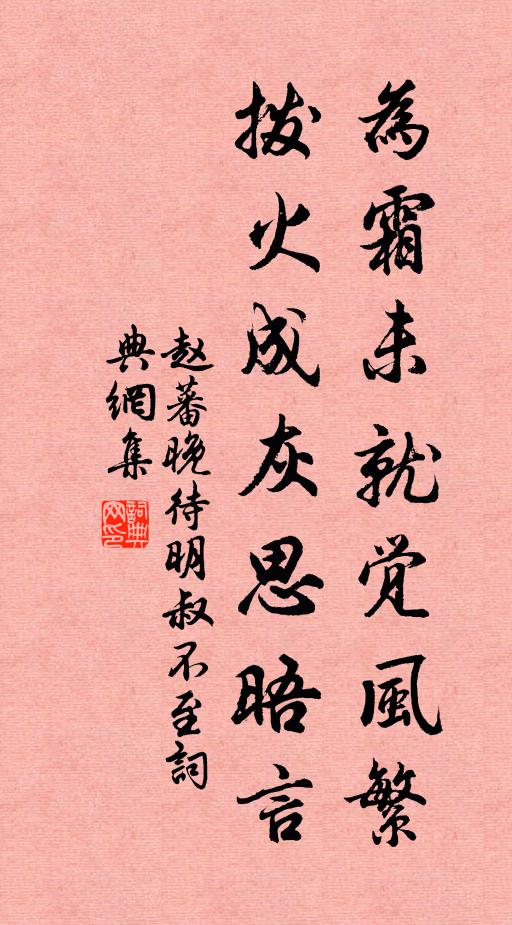 為霜未就觉風繁
拨火成灰思晤言
赵蕃晚待明叔不至詞
典網集
詞典网印